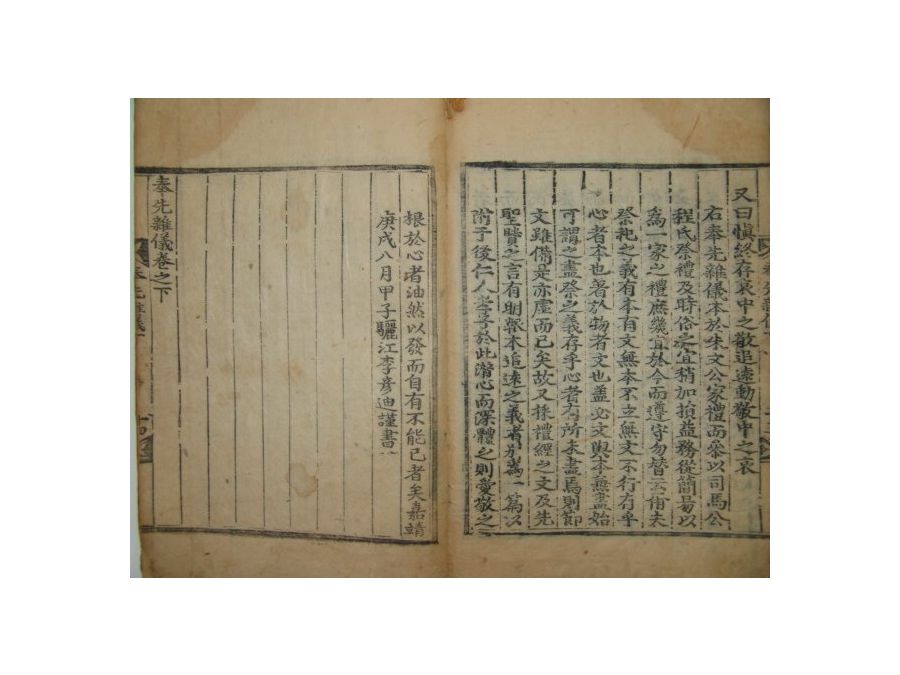 又曰愼終存哀中之敬追遠動敬中之哀
右奉先雜儀本於朱文公家禮而參以司馬公
程氏祭禮及時俗之宜稍加損益務從簡易以
爲一家之禮庶幾宜於今而遵守勿替云甫夫
祭祀之義有本有文無本不立無文不行存乎
心者本也著於物者文也盖必文與本無盡始
可謂之盡祭之義存乎心者有所未盡焉則節
文雖備是亦虛而已矣故又採禮經之文及先
聖賢之言有明報本追遠之義者別爲一篇以
附于後仁人孝子於此潛心而深體之則愛敬之
根於心者油然以發而自有不能已者矣嘉靖
庚戌八月甲子驪江李彦迪謹書
奉先雜儀卷之下
奉先雜儀下
十四